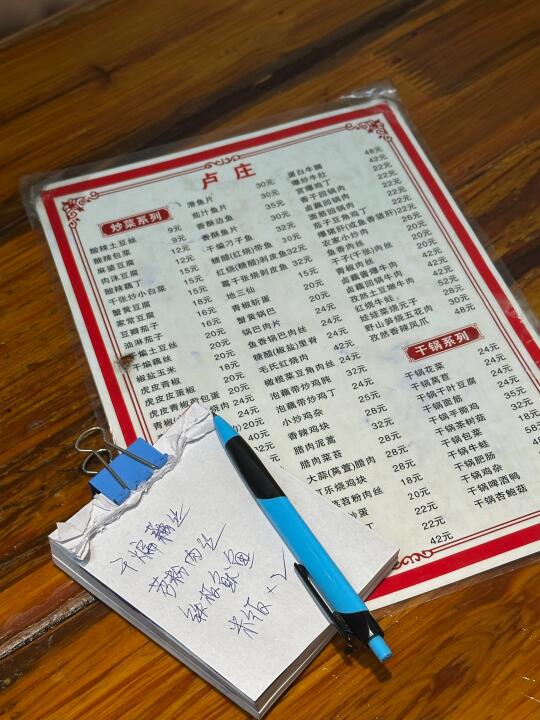 卢庄
炒菜系列
酸辣土豆丝 9元
酸辣包菜 9元
麻婆豆腐 12元
肉沫豆腐 12元
酸辣藕丁 15元
千张炒小白菜 15元
蟹黄豆腐
家常豆腐
豆瓣茄子 16元
油淋茄子
干煸土豆丝
干煸藕丝
椒盐玉米 18元
虎皮青椒
虎皮皮蛋椒 20元
虎皮青椒荷包蛋
滑鱼片 30元
茄汁鱼片 30元
香酥边鱼 35元
香酥鱼片 30元
干煸刁子鱼 30元
糖醋(红烧)带鱼 32元
红烧(糖醋)剥皮鱼 32元
霉干张焖剥皮鱼 32元
地三仙 15元
青椒斩蛋 20元
蟹黄锅巴 20元
锅巴肉片 24元
鱼香锅巴肉丝 24元
糖醋(椒盐)里脊 32元
毛氏红烧肉 42元
橄榄菜豆角肉丝
泡藕带炒鸡胗 32元
泡藕带炒鸡丁
小炒鸡杂
香辣鸡块 28元
腊肉泥蒿
腊肉菜苔
大蒜(莴萱)腊肉
可乐烧鸡块
菜苔粉肉丝
蛋白牛腩 48元
爆炒牛肚 42元
宫爆鸡丁 22元
香干回锅肉 22元
卤藕回锅肉 22元
面筋回锅肉 22元
茄子豆角鸡丁 22元
爆猪肝(或鱼香猪肝) 22元
农家小炒肉
鱼香肉丝 20元
千子(千张)肉丝 20元
青椒肉丝
卤藕酱爆牛肉
卤藕回锅牛肉 42元
孜然土豆焖牛肉
红烧牛蛙 52元
娃娃菜烧元子
野山笋烧五花肉 30元
孜然香辣凤爪 48元
干锅系列
干锅花菜 24元
干锅莴苣 24元
干锅千叶豆腐 24元
干锅面筋
干锅手撕鸡
干锅茶树菇
干锅包菜
干锅牛蛙 58元
干锅肥肠
干锅鸡杂
干锅啤酒鸭
干锅杏鲍菇
干煸藕丝
苕粉肉丝
铁板鱿鱼
米饭×2